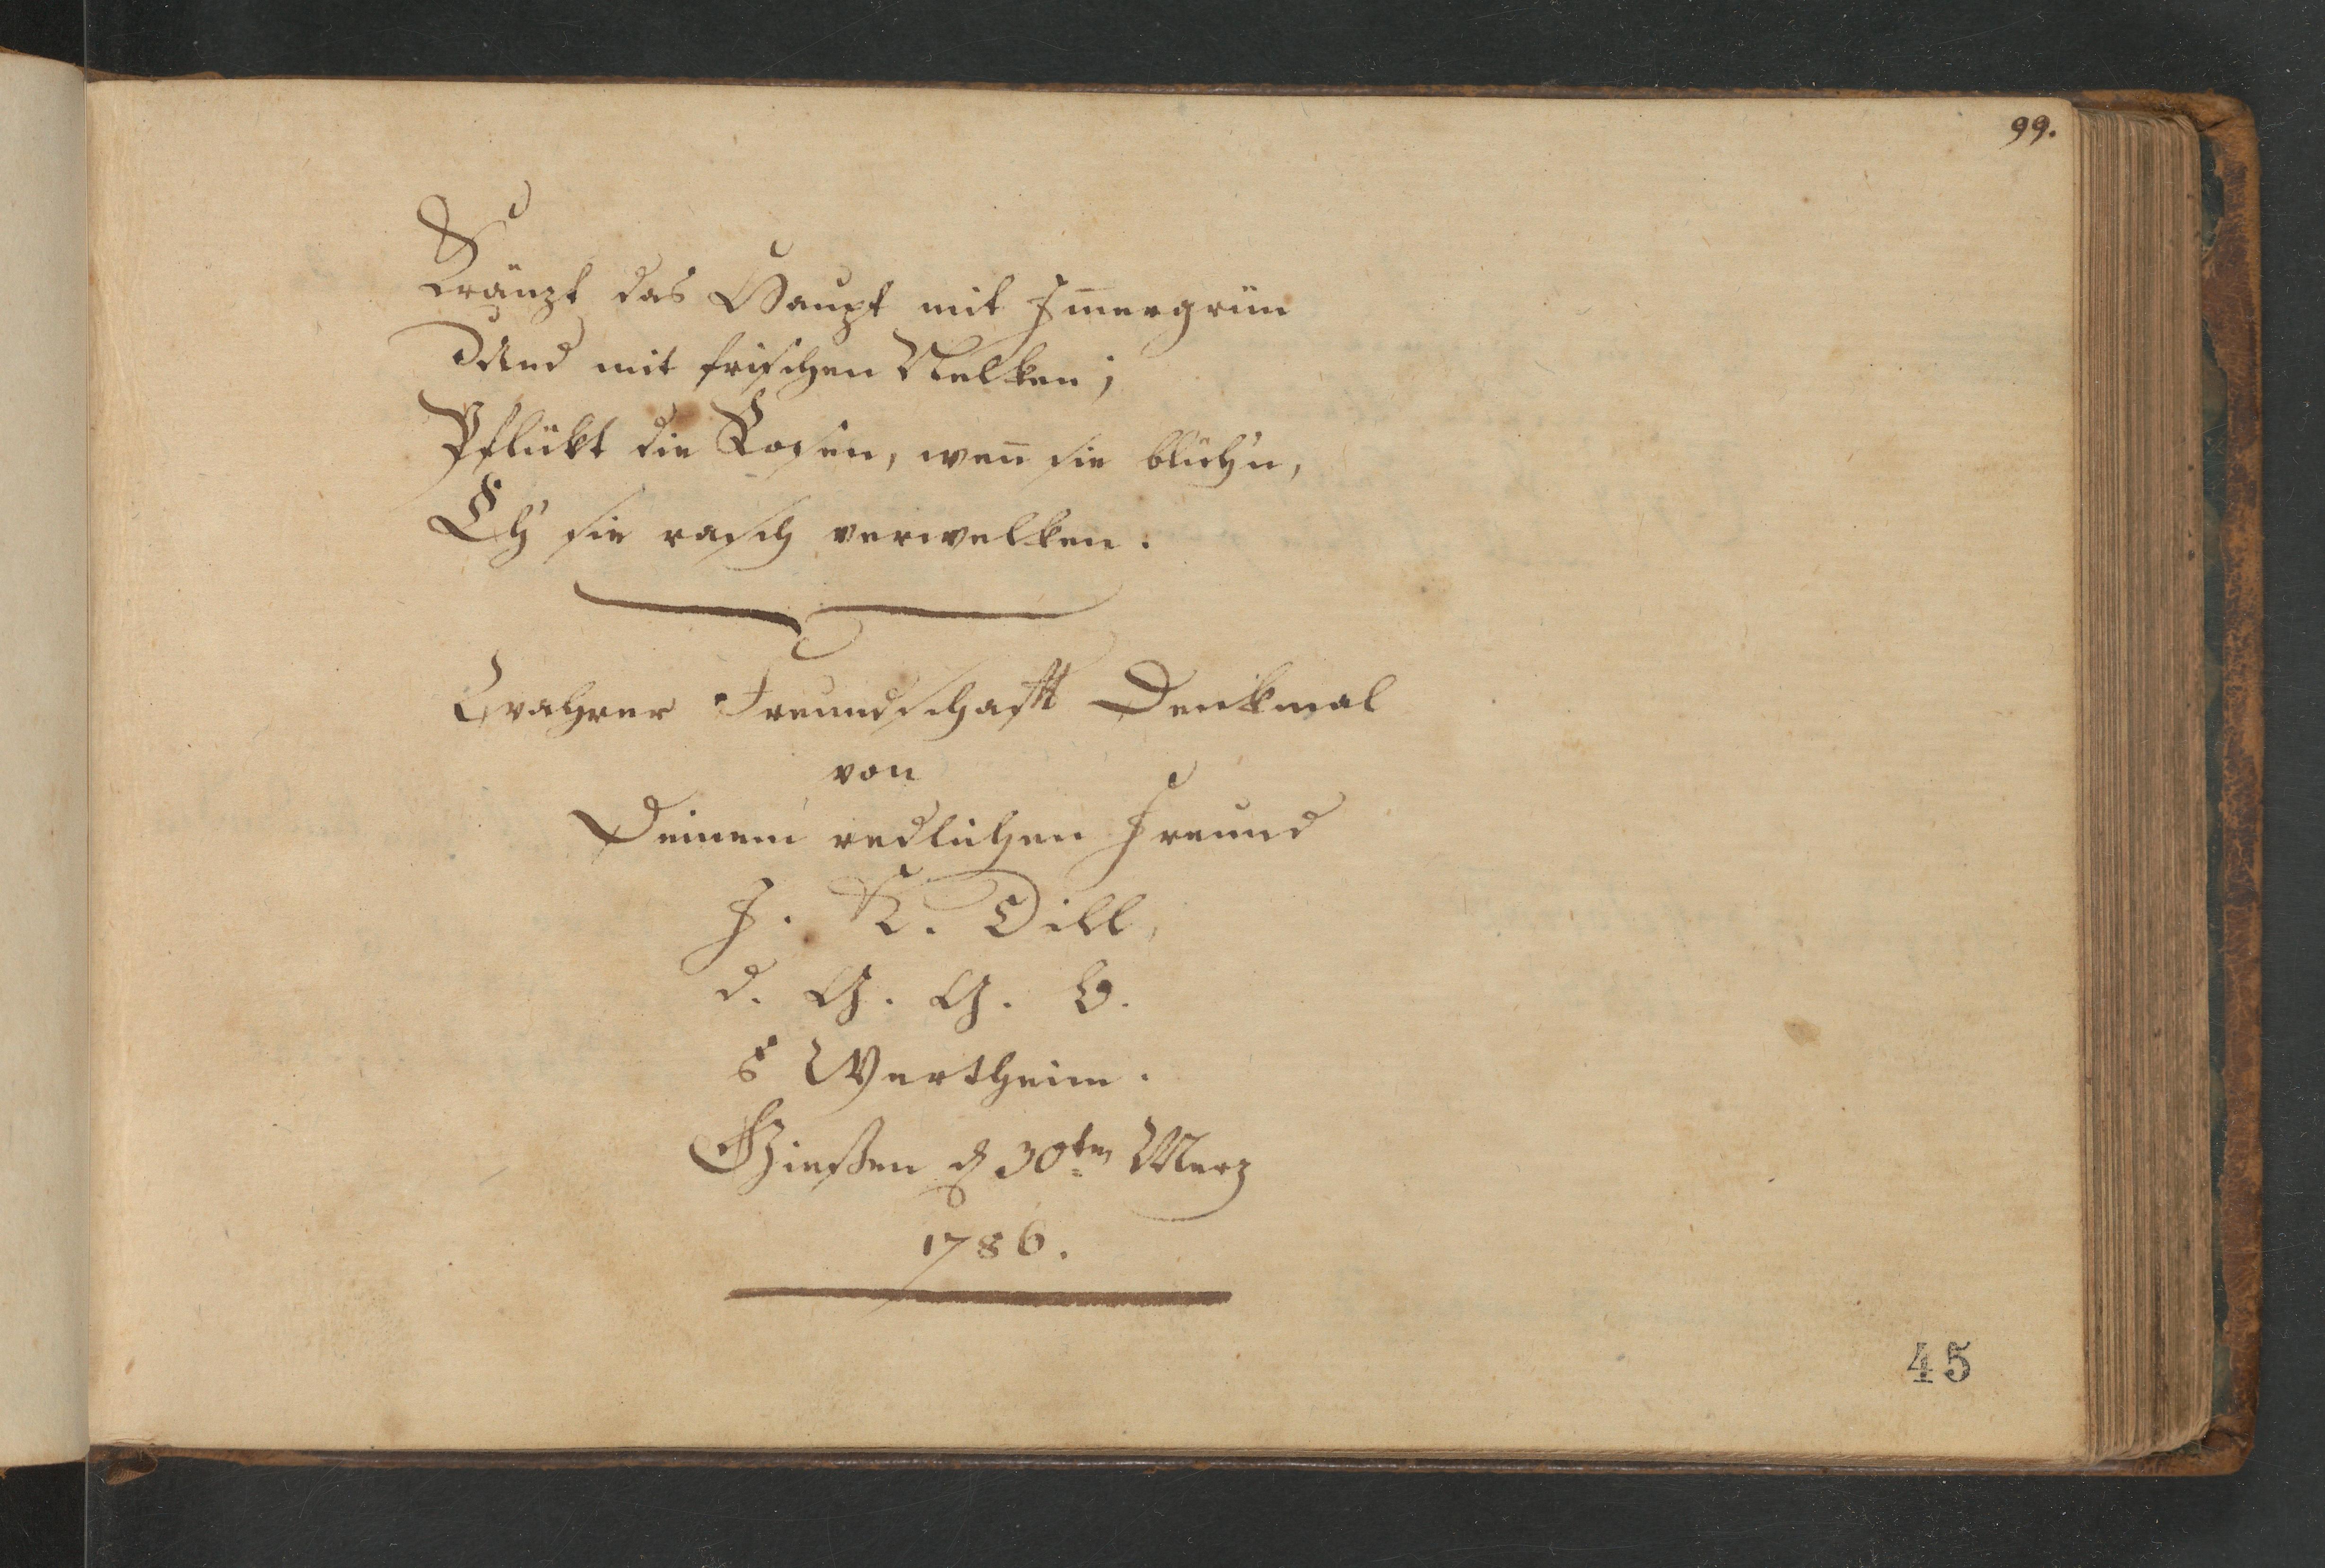 99.
Kränzt das Haupt mit Im̄ergrün
Und mit frischen Nelken;
Pflükt die Rosen, wen̄ sie blüh'n,
Eh' sie rasch verwelken.
Wahrer Freundschafft Denkmal
von
Deinem redlichen Freund
J. K. Dill,
d. G. G. B.
s Wertheim.
Giessen d 30ten Merz
1786.
45